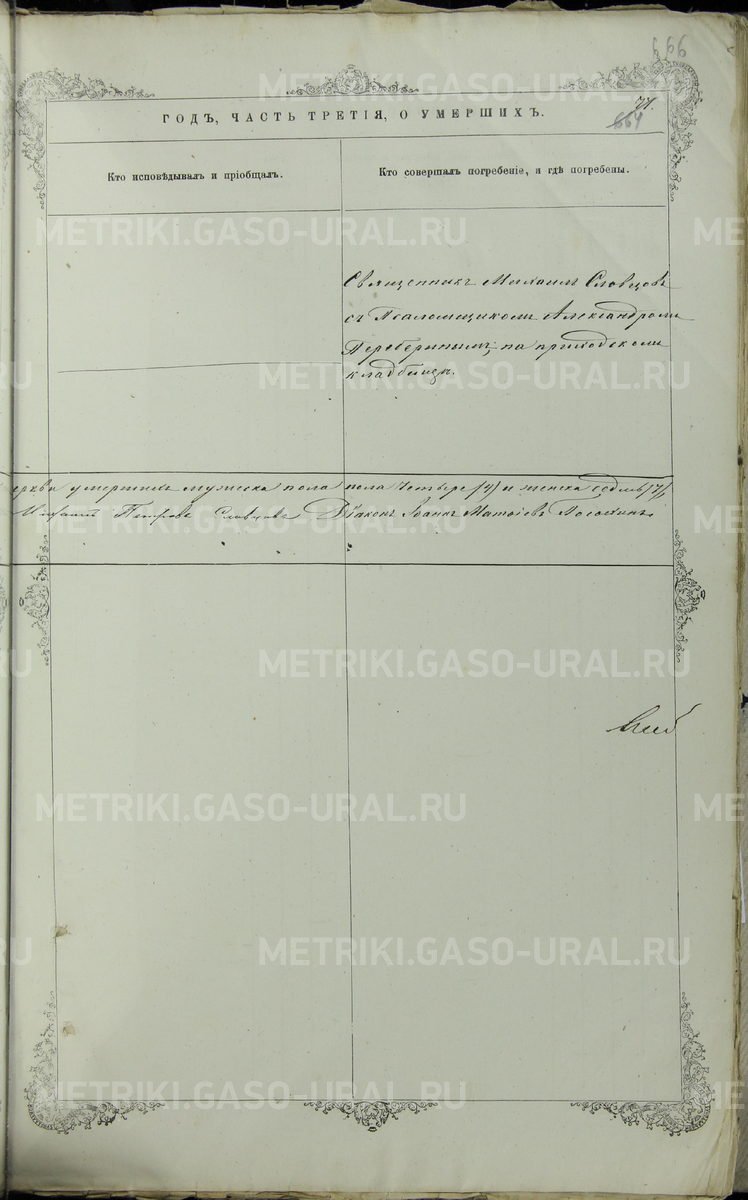 666
71.
664
ГОДЪ, ЧАСТЬ ТРЕТІЯ, О УМЕРШИХЪ.
Кто исповѣдывалъ и пріобщалъ.
Кто совершалъ погребеніе, и гдѣ погребены.
Священникъ Михаилъ Словцовъ
съ Псаломщикомъ Александромъ
на приходскомъ
кладбищѣ.
умершихъ мужеска пола пола четыре (4) и женска седмь (7)
Михаилъ Петровъ Словцовъ Діаконъ Іоаннъ Матѳіевъ
METRIKI.GASO-URAL.RU